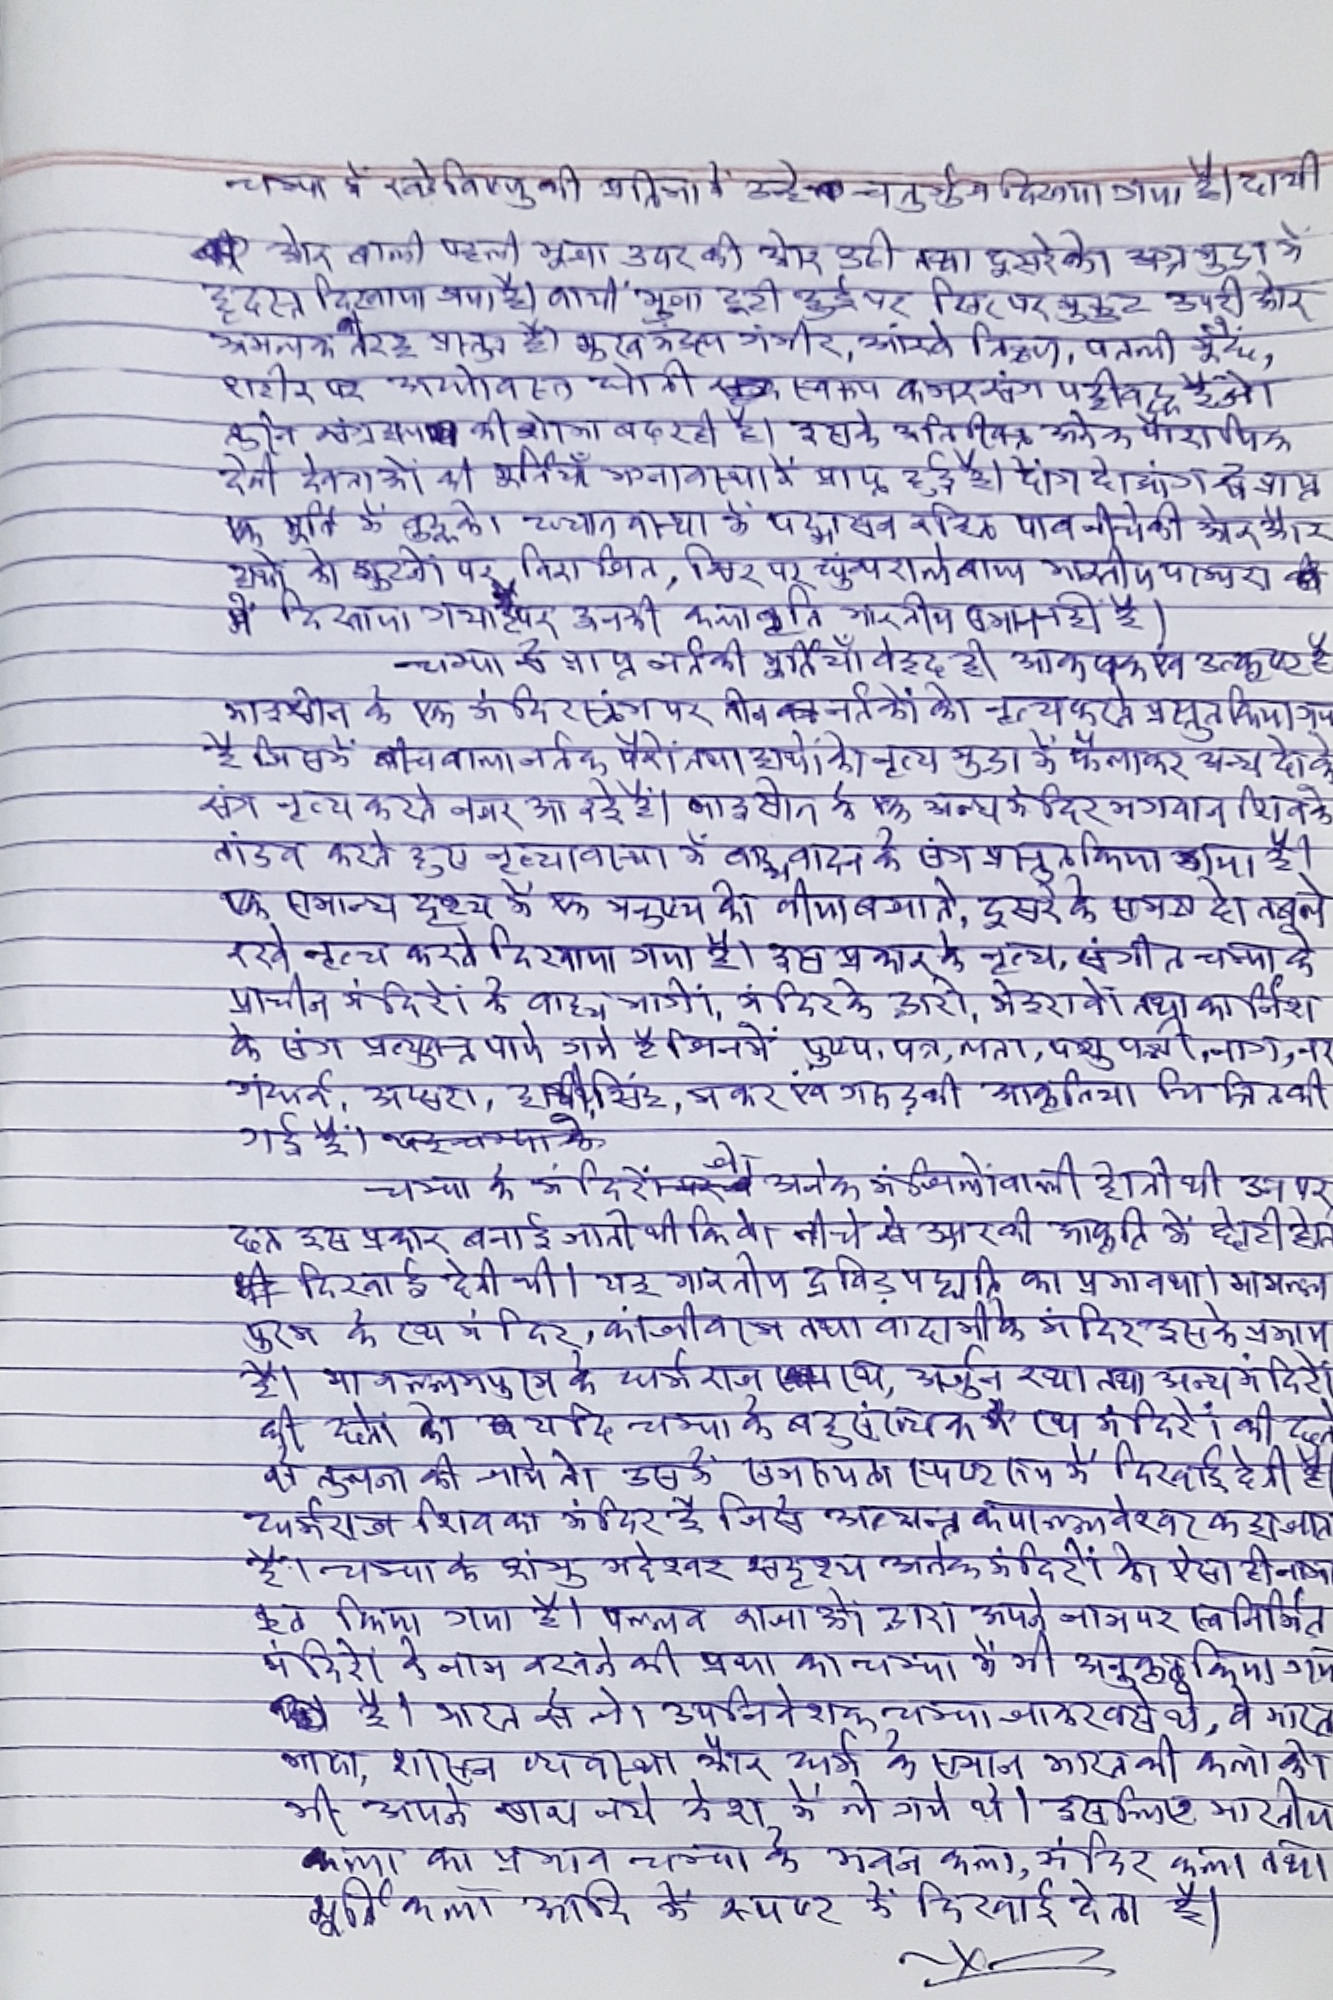 चम्पा में खड़े विष्णु की प्रतिमा में उन्हे चतुर्भुज दिखाया गया है। दायी
ओर वाली पहली भुजा उपर की ओर उठी तथा दूसरे को मुद्रा में
दिखाया गया है। वायीं भुजा टूटी हुई पर सिर पर मुकुट उपरी ओर
तरह प्रस्तुत है। मुख मंडल गंभीर, आंखे, पतली मूँछें,
शरीर पर अधोवस्त्र धोती स्वरूप कमर संग
की शोभा बढ़ रही है। इसके अतिरिक्त अनेक पौराणिक
देवी देवताओं की मूर्तियाँ भग्नावस्था में प्राप्त हुई है। दोंग दोआंग से प्राप्त
एक मूर्ति में बुद्ध को पद्मासन रहित पाव नीचे की ओर और
हाथों को घुटनों पर, सिर पर घुंघराले बाल भारतीय परम्परा
में दिखाया गया है पर उनकी कलाकृति भारतीय समान नहीं है।
चम्पा से प्राप्त नर्तकी मूर्तियाँ वेहद ही आकर्षक एंव उत्कृष्ट है
माइसोन के एक मंदिर स्तंभ पर तीन नर्तकों को नृत्य करते प्रस्तुत किया गया
है जिसमें बीच वाला नर्तक पैरों तथा हाथों को नृत्य मुद्रा में फैलाकर अन्य दो के
संग नृत्य करते नजर आ रहे हैं। माइसोन के एक अन्य मंदिर भगवान शिव के
तांडव करते हुए नृत्यावस्था में वाद्यवादन के संग प्रस्तुत किया गया है।
एक सामान्य दृश्य में एक मनुष्य को वीणा बजाते, दूसरे के समक्ष दो तबूले
रखे नृत्य करते दिखाया गया है। इस प्रकार के नृत्य, संगीत चम्पा के
प्राचीन मंदिरों के वाह्य भागों, मंदिर के द्वारो, मेहरावों तथा कार्निश
के संग पाये गये है जिनमें पुष्प, पत्र, लता, पशु पक्षी, नाग, नर
गंधर्व, अप्सरा, हाथी, सिंह, मकर एंव गरुड़ की आकृतिया चित्रित की
गई हैं।
चम्पा के मंदिरों जो अनेक मंजिलोंवाली होती थी उन पर
छत इस प्रकार बनाई जाती थी कि वो नीचे से उपर की आकृति में छोटी होती
दिखाई देती थी। यह भारतीय द्रविड़ पद्धति का प्रभाव था। मामल्ल
पुरम के रथ मंदिर, कांजीवरम तथा वादामी के मंदिर इसके प्रमाण
है। मावल्लमपुरम के धर्मराज रथ, अर्जुन रथ तथा अन्य मंदिरों
की छतों को यदि चम्पा के बहुसंख्यक रथ मंदिरों की छतों
से तुलना की जाये तो उसमें समरूपता स्पष्ट रूप में दिखाई देती है।
धर्मराज शिव का मंदिर है जिसे अत्यन्त कहा जाता
है। चम्पा के शंभु भद्रेश्वर सदृश्य अनेक मंदिरों को ऐसा ही
किया गया है। पल्लव राजाओं द्वारा अपने नाम पर स्वनिर्मित
मंदिरों के नाम रखने की प्रथा का चम्पा में भी किया गया
है। भारत से जो उपनिवेशक चम्पा जाकर बसे थे, वे भारत
भाषा, शासन व्यवस्था और धर्म के समान भारत की कला को
भी अपने साथ नये देश में ले गये थे। इसलिए भारतीय
कला का प्रभाव चम्पा के भवन कला, मंदिर कला तथा
मूर्ति कला आदि में स्पष्ट में दिखाई देता है।